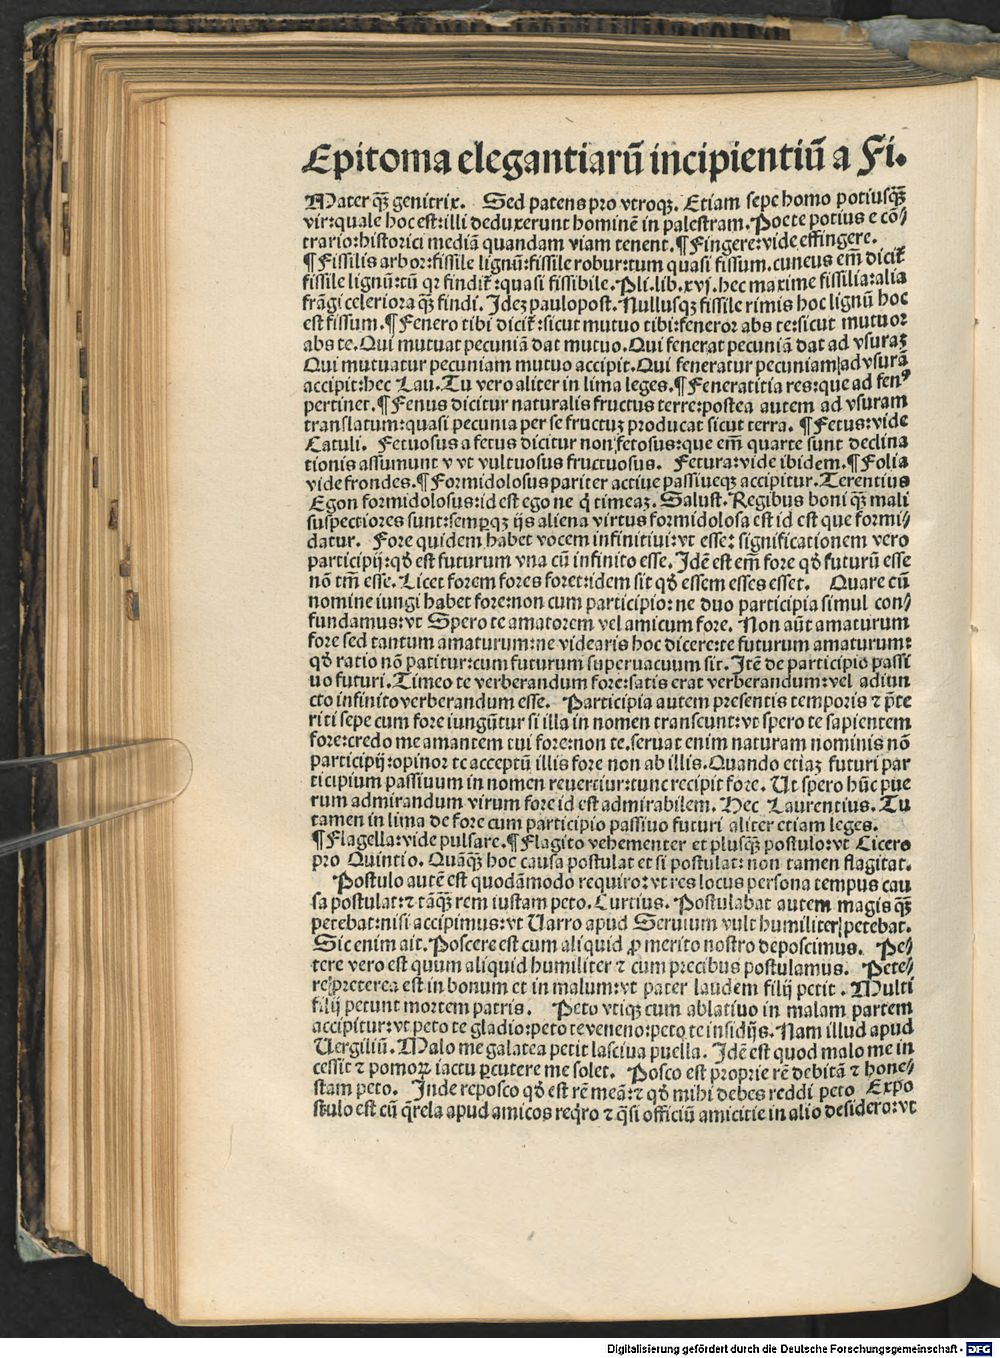 Epitoma elegantiarū incipientiū a Fi.
Mater qꝫ̄ genitrix. Sed patens pro vtroqꝫ. Etiam sepe homo potiusqꝫ̄
vir:quale hoc est:illi deduxerunt hominē in palestram. Poete potius e cō⸗
trario:historici mediā quandam viam tenent. ¶ Fingere:vide effingere.
¶ Fissilis arbor:fissile lignū:fissile robur:tum quasi fissum. cuneus em̄ dicit᷑
fissile lignū:tū qꝛ findit᷑:quasi fissibile. Pli. lib. xvj. hec maxime fissilia:alia
frāgi celeriora qꝫ̄ findi. Idez paulopost. Nullusqꝫ fissile rimis hoc lignū hoc
est fissum. ¶ Fenero tibi dicit᷑:sicut mutuo tibi:feneror abs te:sicut mutuor
abs te. Qui mutuat pecuniā dat mutuo. Qui fenerat pecuniā dat ad vsuraz
Qui mutuatur pecuniam mutuo accipit. Qui feneratur pecuniam ad vsurā
accipit:hec Lau. Tu vero aliter in lima leges. ¶ Feneratitia res:que ad fenꝰ
pertinet. ¶ Fenus dicitur naturalis fructus terre:postea autem ad vsuram
translatum:quasi pecunia per se fructuz producat sicut terra. ¶ Fetus:vide
Catuli. Fetuosus a fetus dicitur non fetosus:que em̄ quarte sunt declina
tionis assumunt v vt vultuosus fructuosus. Fetura:vide ibidem. ¶ Folia
vide frondes. ¶ Formidolosus pariter actiue passiueqꝫ accipitur. Terentius
Egon formidolosus:id est ego ne q̄ timeaz. Salust. Regibus boni qꝫ̄ mali
suspectiores sunt:semꝑqꝫ ijs aliena virtus formidolosa est id est que formi⸗
datur. Fore quidem habet vocem infinitiui:vt esse: significationem vero
participij:qđ est futurum vna cū infinito esse. Idē est em̄ fore qđ futurū esse
nō tm̄ esse. Licet forem fores foret:idem sit qđ essem esses esset. Quare cū
nomine iungi habet fore:non cum participio:ne duo participia simul con⸗
fundamus:vt Spero te amatorem vel amicum fore. Non aūt amaturum
fore sed tantum amaturum:ne videaris hoc dicere:te futurum amaturum:
qđ ratio nō patitur:cum futurum superuacuum sit. Itē de participio passi
uo futuri. Timeo te verberandum fore:satis erat verberandum:vel adiun
cto infinito verberandum esse. Participia autem presentis temporis ⁊ p̄te
riti sepe cum fore iungūtur si illa in nomen transeunt:vt spero te sapientem
fore:credo me amantem tui fore:non te. seruat enim naturam nominis nō
participij:opinor te acceptū illis fore non ab illis. Quando etiaz futuri par
ticipium passiuum in nomen reuertiur:tunc recipit fore. Ut spero hūc pue
rum admirandum virum fore id est admirabilem. Hec Laurentius. Tu
tamen in lima de fore cum participio passiuo futuri aliter etiam leges.
¶ Flagella:vide pulsare. ¶ Flagito vehementer et plusqꝫ̄ postulo:vt Cicero
pro Quintio. Quāqꝫ̄ hoc causa postulat et si postulat: non tamen flagitat.
Postulo autē est quodāmodo requiro:vt res locus persona tempus cau
sa postulat:⁊ tāqꝫ̄ rem iustam peto. Curtius. Postulabat autem magis qꝫ̄
petebat:nisi accipimus:vt Uarro apud Seruium vult humiliter petebat.
Sic enim ait. Poscere est cum aliquid ꝓ merito nostro deposcimus. Pe⸗
tere vero est quum aliquid humiliter ⁊ cum precibus postulamus. Pete⸗
re preterea est in bonum et in malum:vt pater laudem filij petit. Multi
filij petunt mortem patris. Peto vtiqꝫ cum ablatiuo in malam partem
accipitur:vt peto te gladio:peto te veneno:peto te insidijs. Nam illud apud
Uergiliū. Malo me galatea petit lasciua puella. Idē est quod malo me in
cessit ⁊ pomoꝝ iactu ꝑcutere me solet. Posco est proprie rē debitā ⁊ hone⸗
stam peto. Inde reposco qđ est rē meā:⁊ qđ mihi debes reddi peto Expo
stulo est cū q̄rela apud amicos req̄ro ⁊ q̄si officiū amicitie in alio desidero:vt
Digitalisierung gefördert durch die Deutsche Forschungsgemeinschaft - DFG